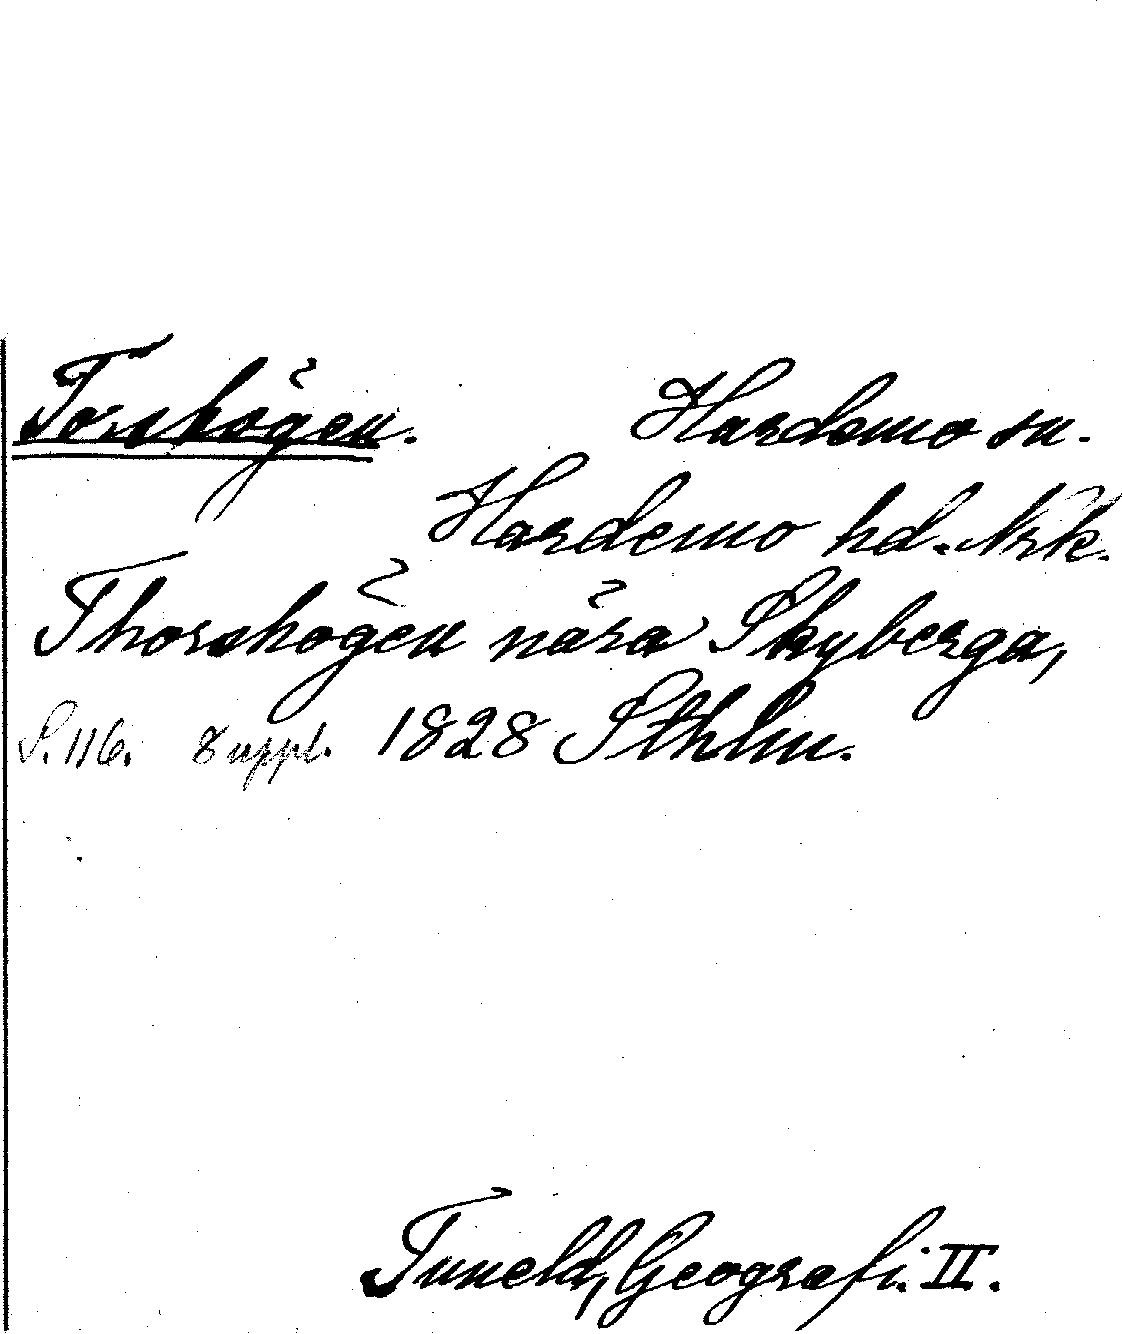 Torshögen. Hardemo sn.
Hardemo hd. Nrk.
Thorshögen nära Skyberga,
S. 116. Suppl. 1828 Sthlm.
Tuneld, Geografi. II.